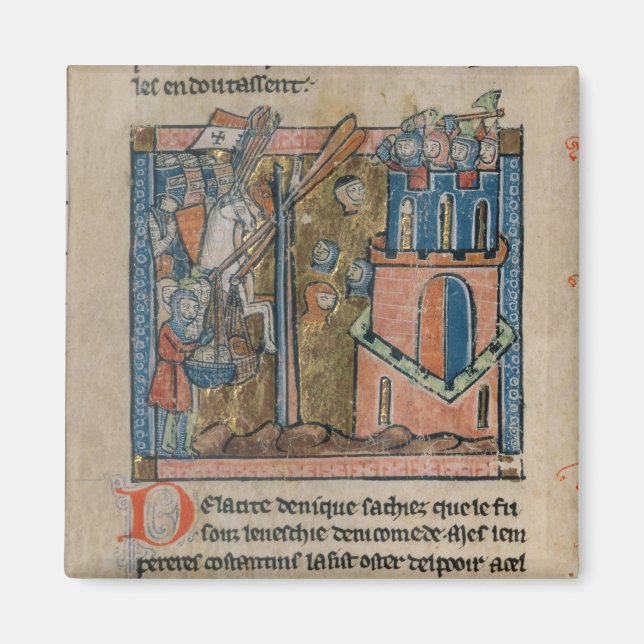 les en doutassent:
De la cite de nique sachiez que le fu
souz leveschie de nicomede. Mes lem
pereres costantins la fist oster del pooir a cel